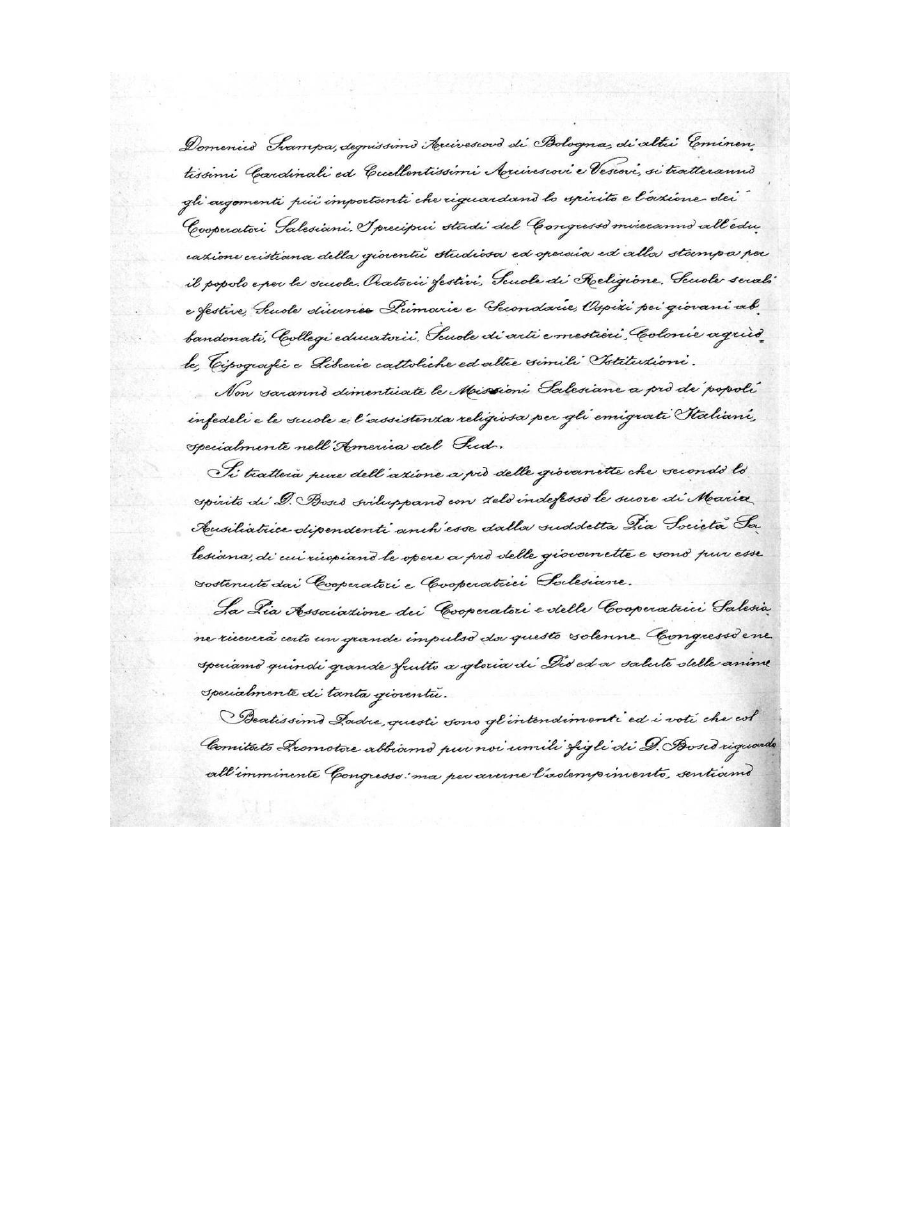 Domenico Svampa, degnissimo Arcivescovo di Bologna, di altri Eminen-
tissimi Cardinali ed Eccellentissimi Arcivescovi e Vescovi, si tratteranno
gli argomenti più importanti che riguardano lo spirito e l'azione dei
Cooperatori Salesiani. I precipui studi del Congresso mireranno all'edu-
cazione cristiana della gioventù studiosa ed operaia ed alla stampa per
il popolo e per le scuole. Oratorii festivi, Scuole di Religione, Scuole serali
e festive, Scuole diurne Primarie e Secondarie, Ospizi pei giovani ab-
bandonati, Collegi educatorii, Scuole di arti e mestieri, Colonie agrico-
le, Tipografie e Librerie cattoliche ed altre simili Istituzioni.
Non saranno dimenticate le Missioni Salesiane a prò de' popoli
infedeli e le scuole e l'assistenza religiosa per gli emigrati Italiani,
specialmente nell'America del Sud.
Si tratterà pure dell'azione a prò delle giovanette che secondo lo
spirito di D. Bosco sviluppano con zelo indefesso le suore di Maria
Ausiliatrice dipendenti anch'esse dalla suddetta Pia Società Sa-
lesiana, di cui ricopiano le opere a prò delle giovanette e sono pur esse
sostenute dai Cooperatori e Cooperatrici Salesiane.
La Pia Associazione dei Cooperatori e delle Cooperatrici Salesia-
ne riceverà certo un grande impulso da questo solenne Congresso e ne
speriamo quindi grande frutto a gloria di Dio ed a salute delle anime
specialmente di tanta gioventù.
Beatissimo Padre, questi sono gl'intendimenti ed i voti che col
Comitato Promotore abbiamo pur noi umili figli di D. Bosco riguardo
all'imminente Congresso: ma per averne l'adempimento, sentiamo